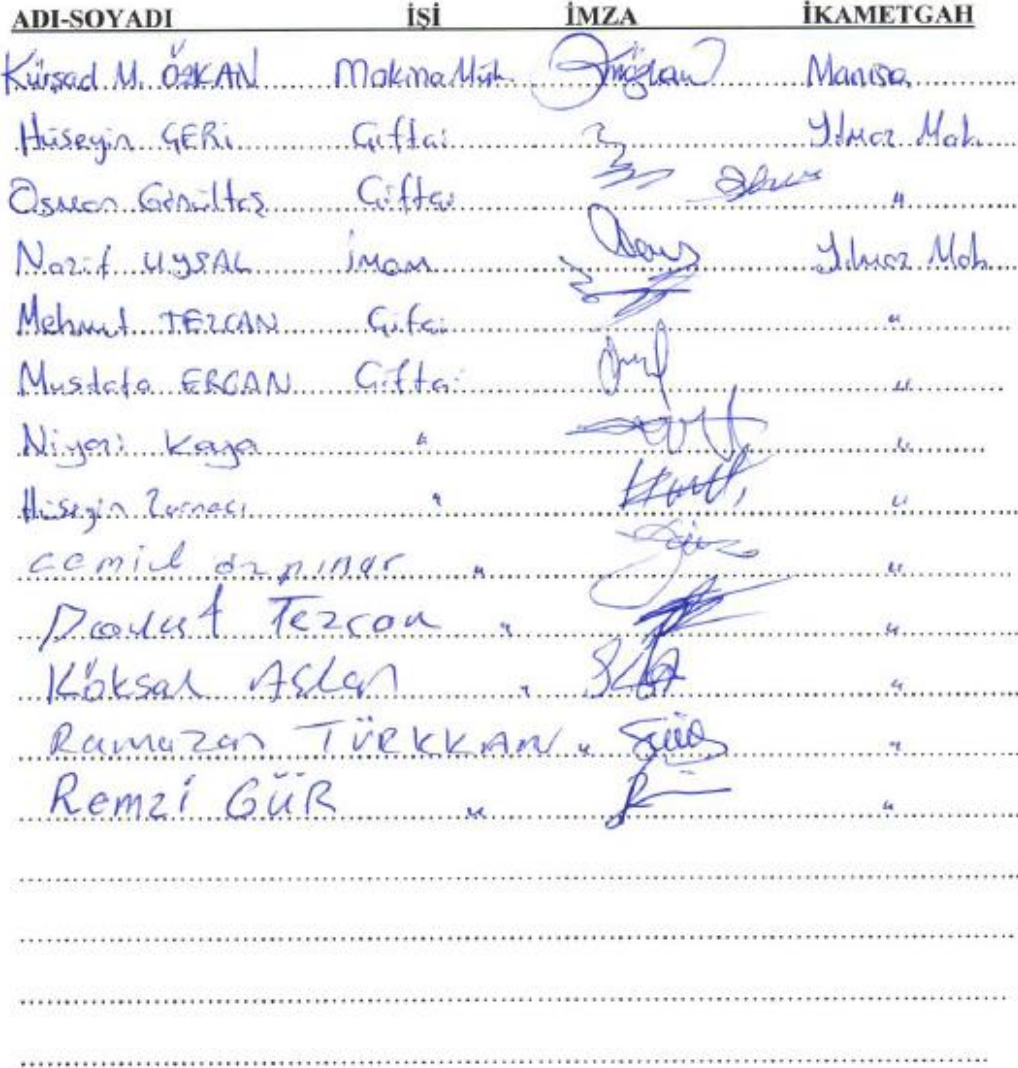 ADI-SOYADI İŞİ İMZA İKAMETGAH
Kürşad M. ÖZKAN Makina Müh. Manisa
Hüseyin GERİ Çiftçi Yılmaz Mah.
Osman Çiftçi "
Nazif UYSAL İmam Yılmaz Mah.
Mehmut TEZCAN Çifçi "
Mustafa ERCAN Çiftçi "
Niyazi Kaya " "
Hüseyin Zurnacı " "
cemil özpınar " "
Davut Tezcan " "
Köksal Aslan " "
Ramazan TÜRKKAN " "
Remzi GÜR " "